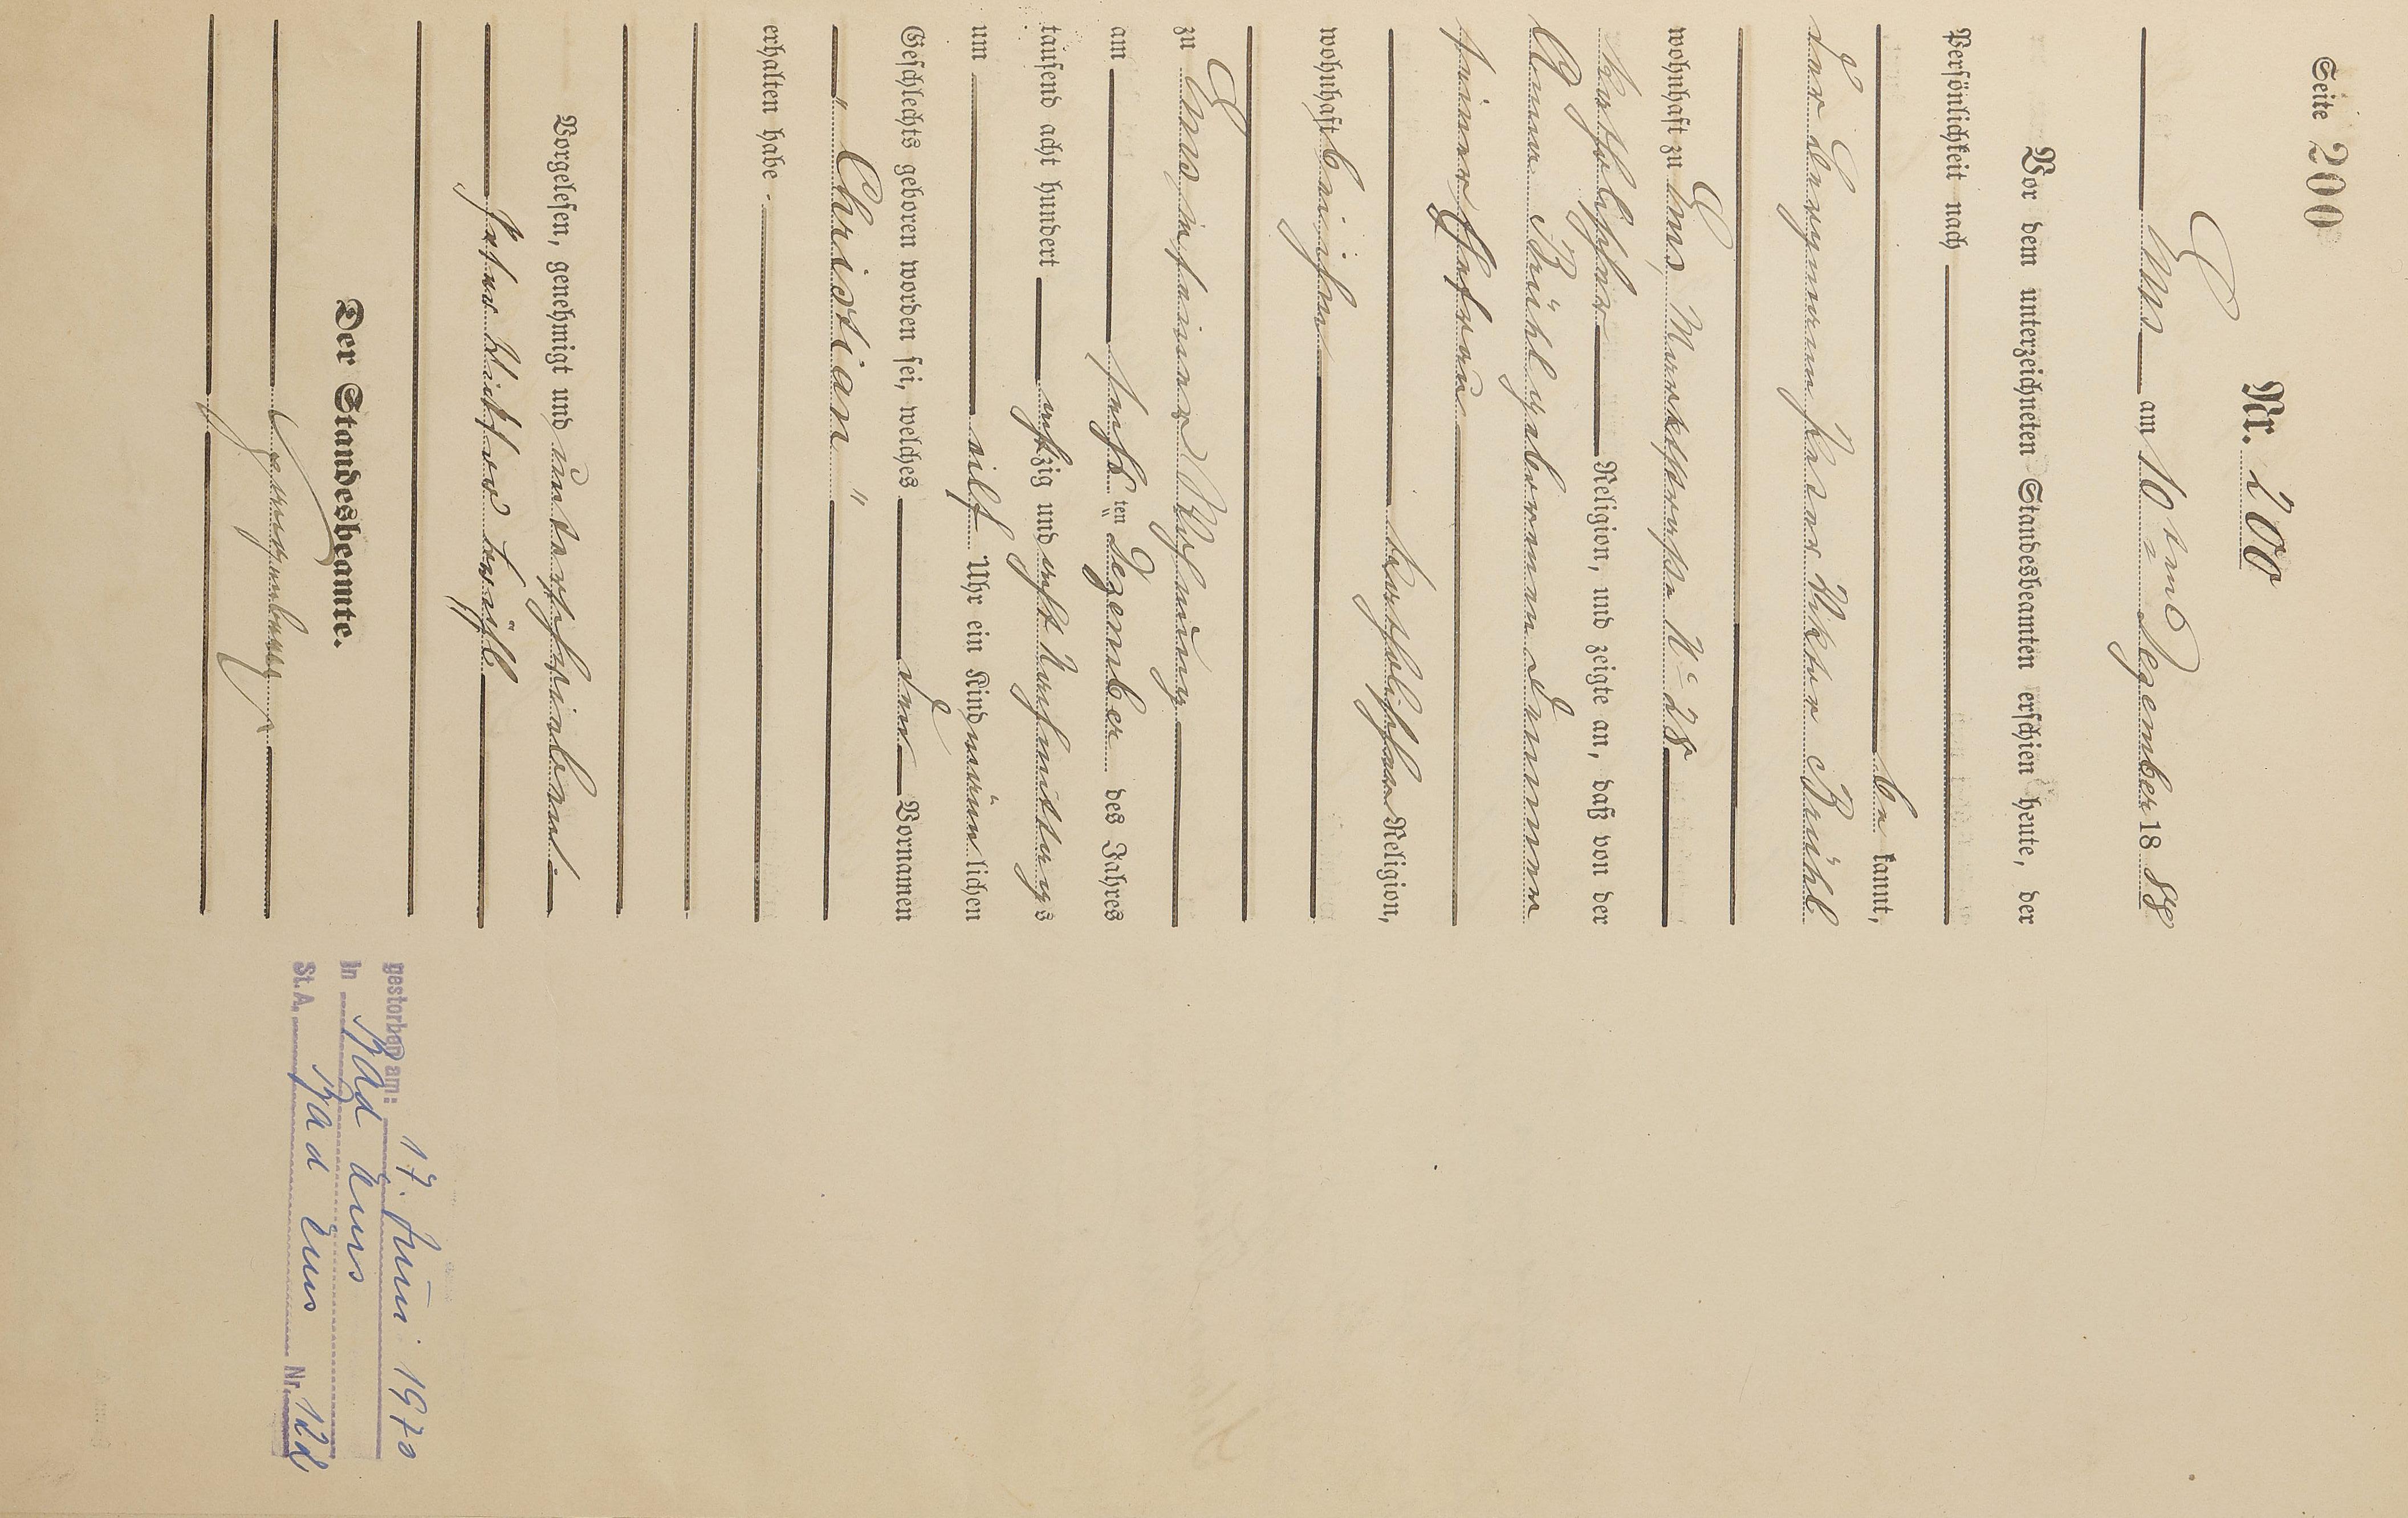 Seite 200
Nr. 200
Ems am 10 ten Dezember 1888
Vor dem unterzeichneten Standesbeamten erschien heute, der
Persönlichkeit nach
be kannt,
der Bergmann Peter Viktor Brühl
wohnhaft zu Ems, Marktstraße No 28
katholischer Religion, und zeigte an, daß von der
Anna Brühl geborenen
seiner Ehefrau
katholischer Religion,
wohnhaft bei ihm
zu Ems, in seiner Wohnung
am sechsten Dezember des Jahres
tausend acht hundert achtzig und acht Nachmittags
um elf Uhr ein Kind männlichen
Geschlechts geboren worden sei, welches den Vornamen
"Christian"
erhalten habe.
Vorgelesen, genehmigt und unterschrieben.
Peter Viktor Brühl
Der Standesbeamte.
gestorben am: 17. Juni 1970
in Bad Ems
St.A. Bad Ems Nr. 122